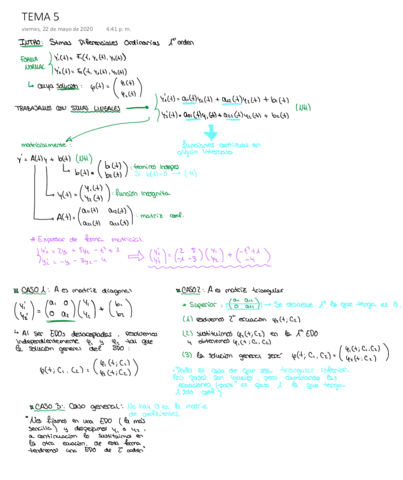 TEMA 5
viernes, 22 de mayo de 2020 4:41 p. m.
INTRO: Sistemas Diferenciales Ordinarios 1er orden
FORMA NORMAL
y₁'(t) = F₁(t, y₁(t), y₂(t))
y₂'(t) = F₂(t, y₁(t), y₂(t))
↳ cuya solución: φ(t) = (y₁(t) y₂(t))
TRABAJAMOS CON SIMAS LINEALES
y₁'(t) = a₁₁(t)y₁(t) + a₁₂(t)y₂(t) + b₁(t)
y₂'(t) = a₂₁(t)y₁(t) + a₂₂(t)y₂(t) + b₂(t)
(LN)
funciones continuas en
algún intervalo
matricialmente:
y' = A(t)y + b(t) (LN)
b(t) = (b₁(t) b₂(t)) : término indepes
Si b(t)=0 → (LH)
y(t) = (y₁(t) y₂(t)) : función incógnita
A(t) = (a₁₁(t) a₁₂(t) a₂₁(t) a₂₂(t)) : matriz coef.
* Expresar de forma matricial
⇒ (y₁' y₂') = (2 5 -1 -3)(y₁ y₂) + (-t²+1 -4)
CASO 1: A es matriz diagonal
(y₁' y₂') = (a₁ 0 0 a₂)(y₁ y₂) + (b₁ b₂)
↳ Al ser EDOs desacopladas, resolvemos
independientemente φ₁ y φ₂ tal que
la solución general del EDO:
φ(t; C₁, C₂) = (φ₁(t, C₁) φ₂(t, C₂))
CASO 2: A es matriz triangular
* Superior:
→ Se resuelve 1º la que tenga el 0.
(1) resolvemos 2ª ecuación φ₂(t, C₂)
(2) sustituimos φ₂(t, C₂) en la 1ª EDO
y obtenemos φ₁(t, C₁, C₂)
(3) la solución general será: φ(t; C₁, C₂) = (φ₁(t; C₁, C₂) φ₂(t; C₂))
los pasos son iguales pero cambiando las
ecuaciones
CASO 3: Caso general: No hay 0 en la matriz
de coeficientes
"Nos fijamos en una EDO (la más
sencilla) y despejamos y₁ o y₂,
a continuación lo sustituimos en
la otra ecuación, de esta forma
tendremos una EDO de 2º orden"